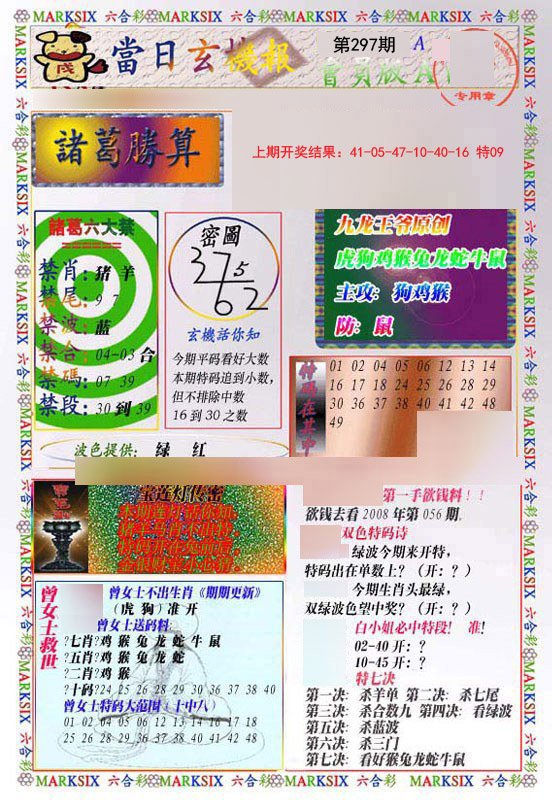 MARKSIX 六合彩MARKSIX 六合彩MARKSIX 六合彩MARKSIX 六合彩
當日玄機報
第297期 A
會員版A
专用章
諸葛勝算
上期开奖结果：41-05-47-10-40-16 特09
諸葛六大禁
禁肖：猪 羊
禁尾：9 7
禁波：蓝
禁合：04-03合
禁碼：07 39
禁段：30到39
密圖
37
5
62
玄機話你知
今期平码看好大数
本期特码追到小数,
但不排除中数
16到30之数
九龙王爷原创
虎狗鸡猴兔龙蛇牛鼠
主攻: 狗鸡猴
防: 鼠
特码在其中
01 02 04 05 06 12 13 14
16 17 18 24 25 26 28 29
30 36 37 38 40 41 42 48
49
波色提供: 绿 红
宝莲灯传密
第一手欲钱料！！
欲钱去看2008年第056期.
双色特码诗
绿波今期来开特,
特码出在单数上？(开:？)
今期生肖头最绿,
双绿波色望中奖？(开:？)
白小姐必中特段! 准!
02-40开:？
10-45开:？
特七决
第一决: 杀羊单 第二决: 杀七尾
第三决: 杀合数九 第四决: 看绿波
第五决: 杀蓝波
第六决: 杀三门
第七决: 看好猴兔龙蛇牛鼠
曾女士救世
曾女士不出生肖《期期更新》
(虎 狗) 准开
曾女士送码料:
?七肖?鸡 猴 兔 龙 蛇 牛 鼠
?五肖?鸡 猴 兔 龙 蛇
?二肖?鸡 猴
?十码?24 25 26 28 29 30 36 37 38 40
曾女士特码大范围（十中八）
01 02 04 05 06 12 13 14 16 17 18
25 26 28 29 36 37 38 40 41 42 48
MARKSIX 六合彩MARKSIX 六合彩MARKSIX 六合彩MARKSIX 六合彩